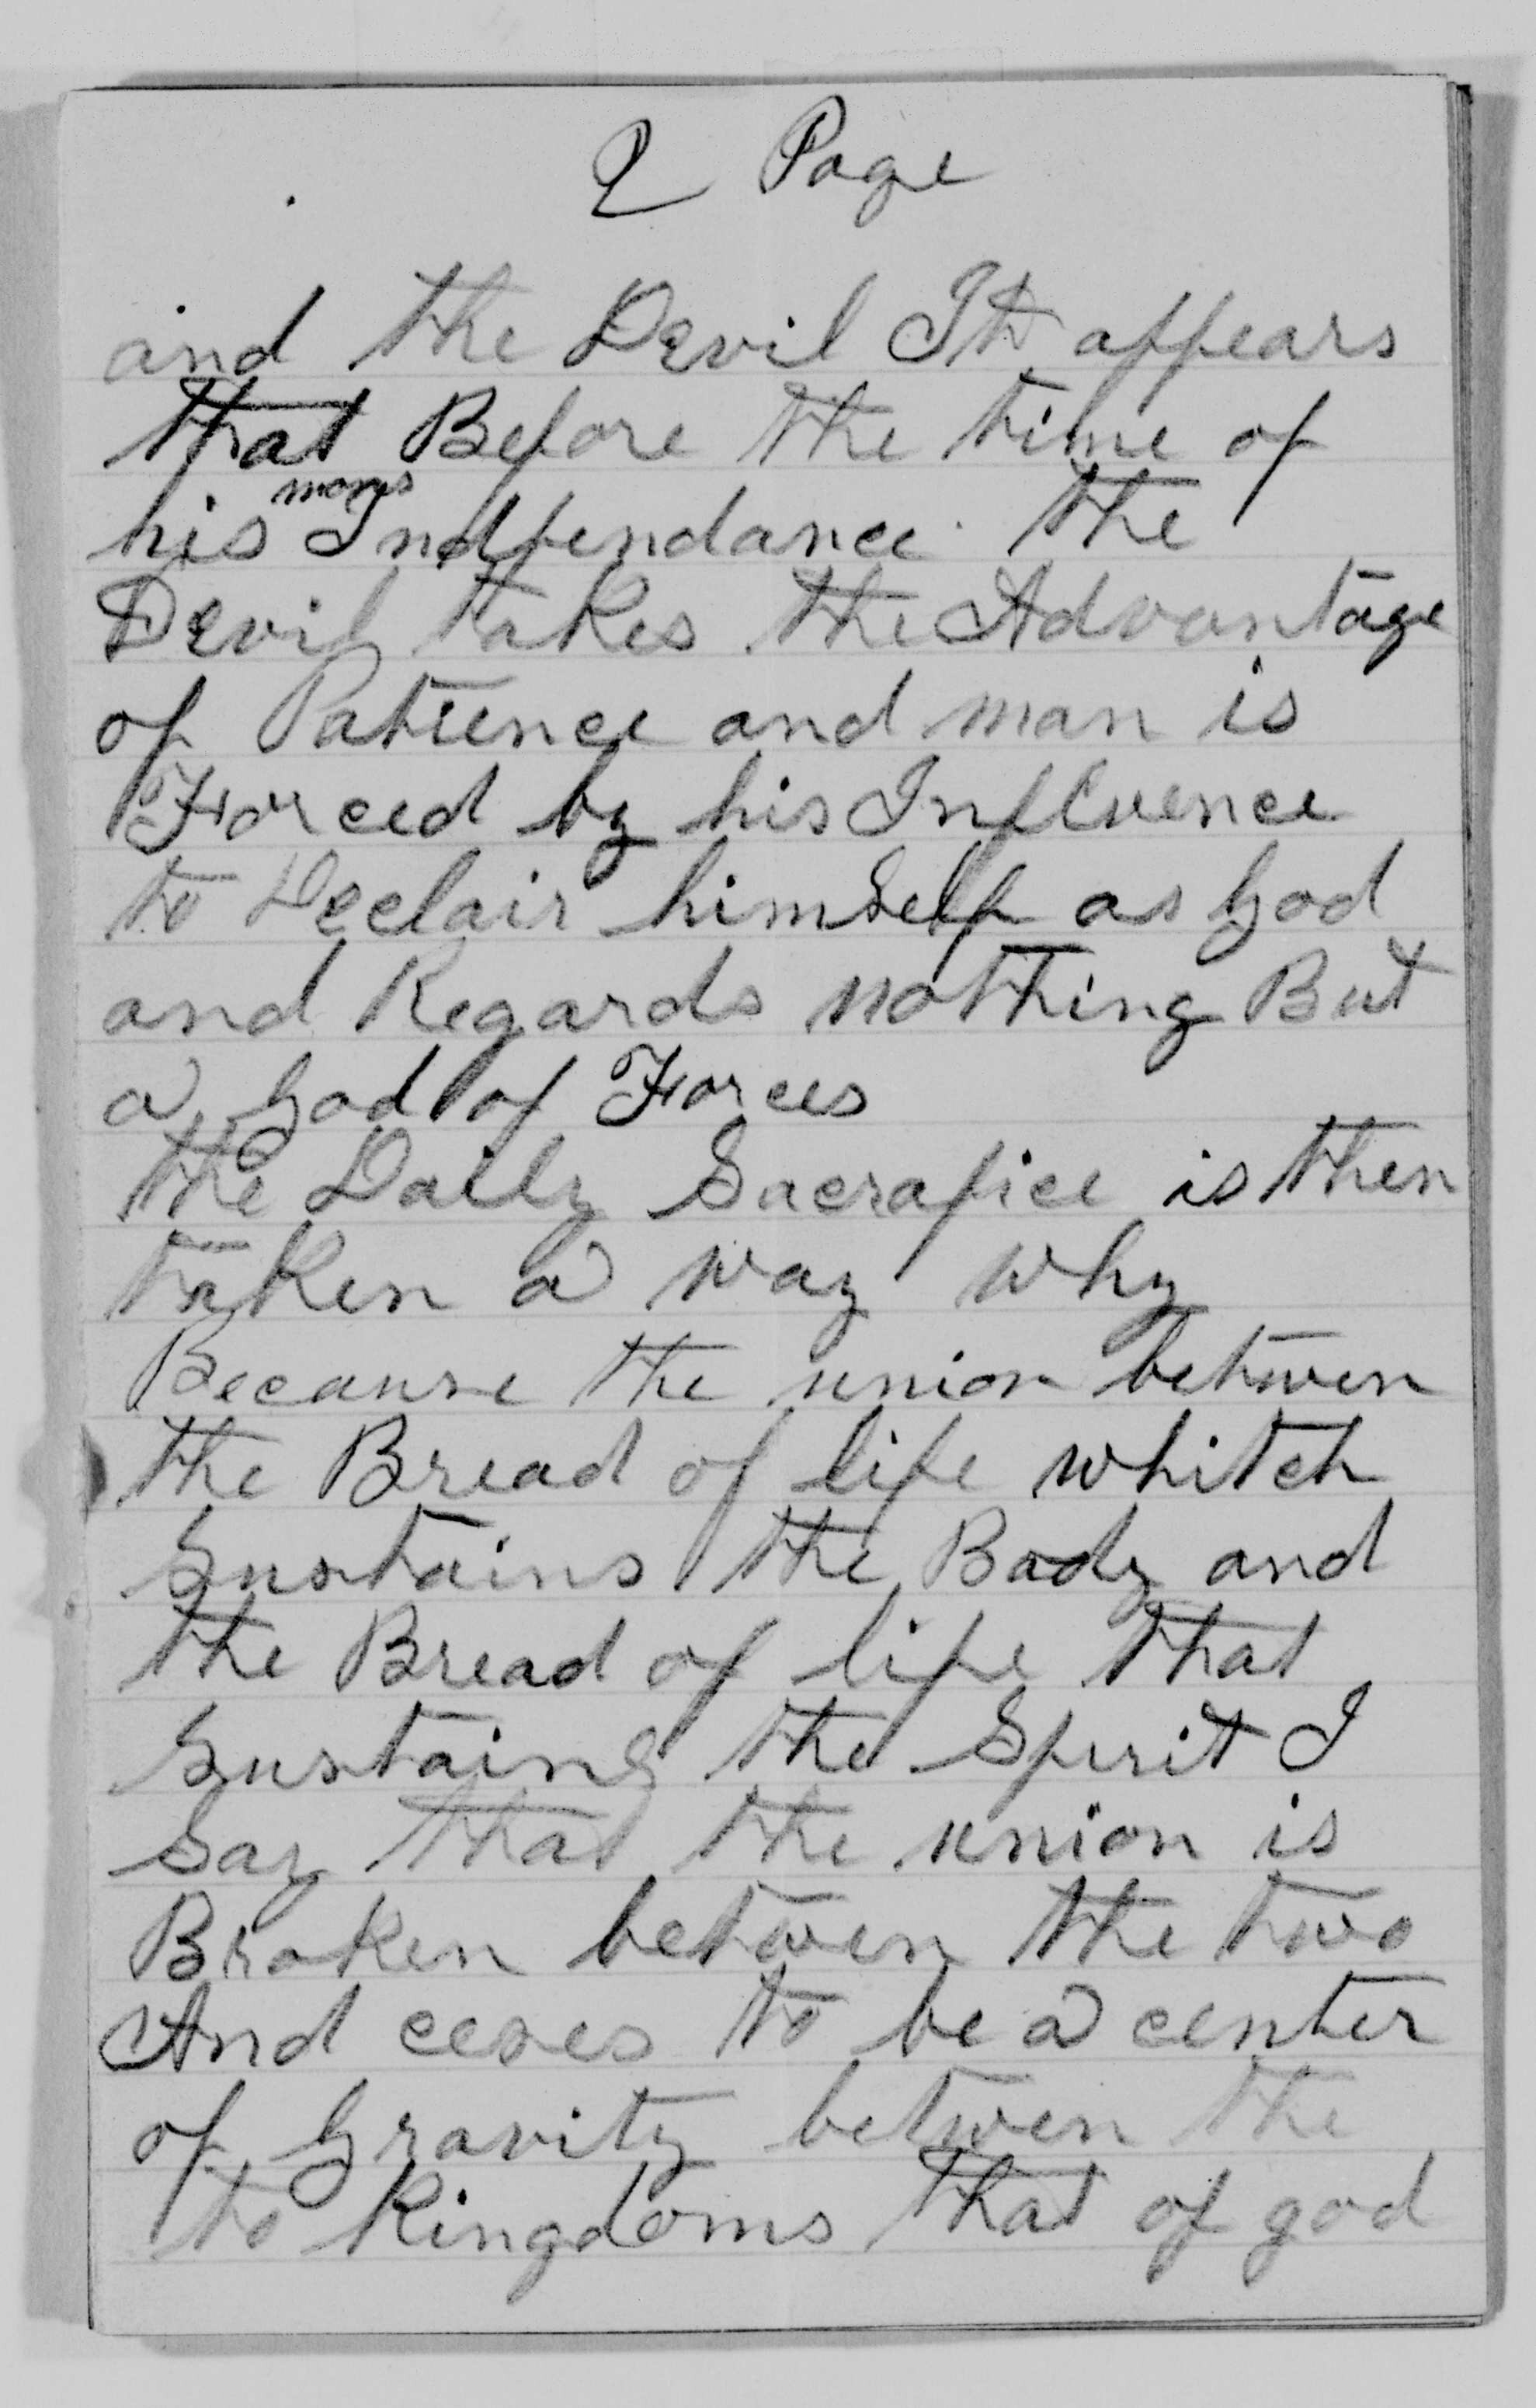 2 Page
and the Devil It appears
that Before the time of
his mans Indpendance. the
Devil takes the Advantage
of Patience and man is
Forced by his Influence
to Declair himself as God
and Regards nothing But
a God of Forces
the Daily Sacrafice is then
taken a way why
Because the union betwen
the Bread of life whitch
Sustains the Body and
the Bread of life that
Sustains the Spirit I
Say that the union is
Broken betwen the two
And ceses to be a center
of Gravity betwen the
to Kingdoms that of god